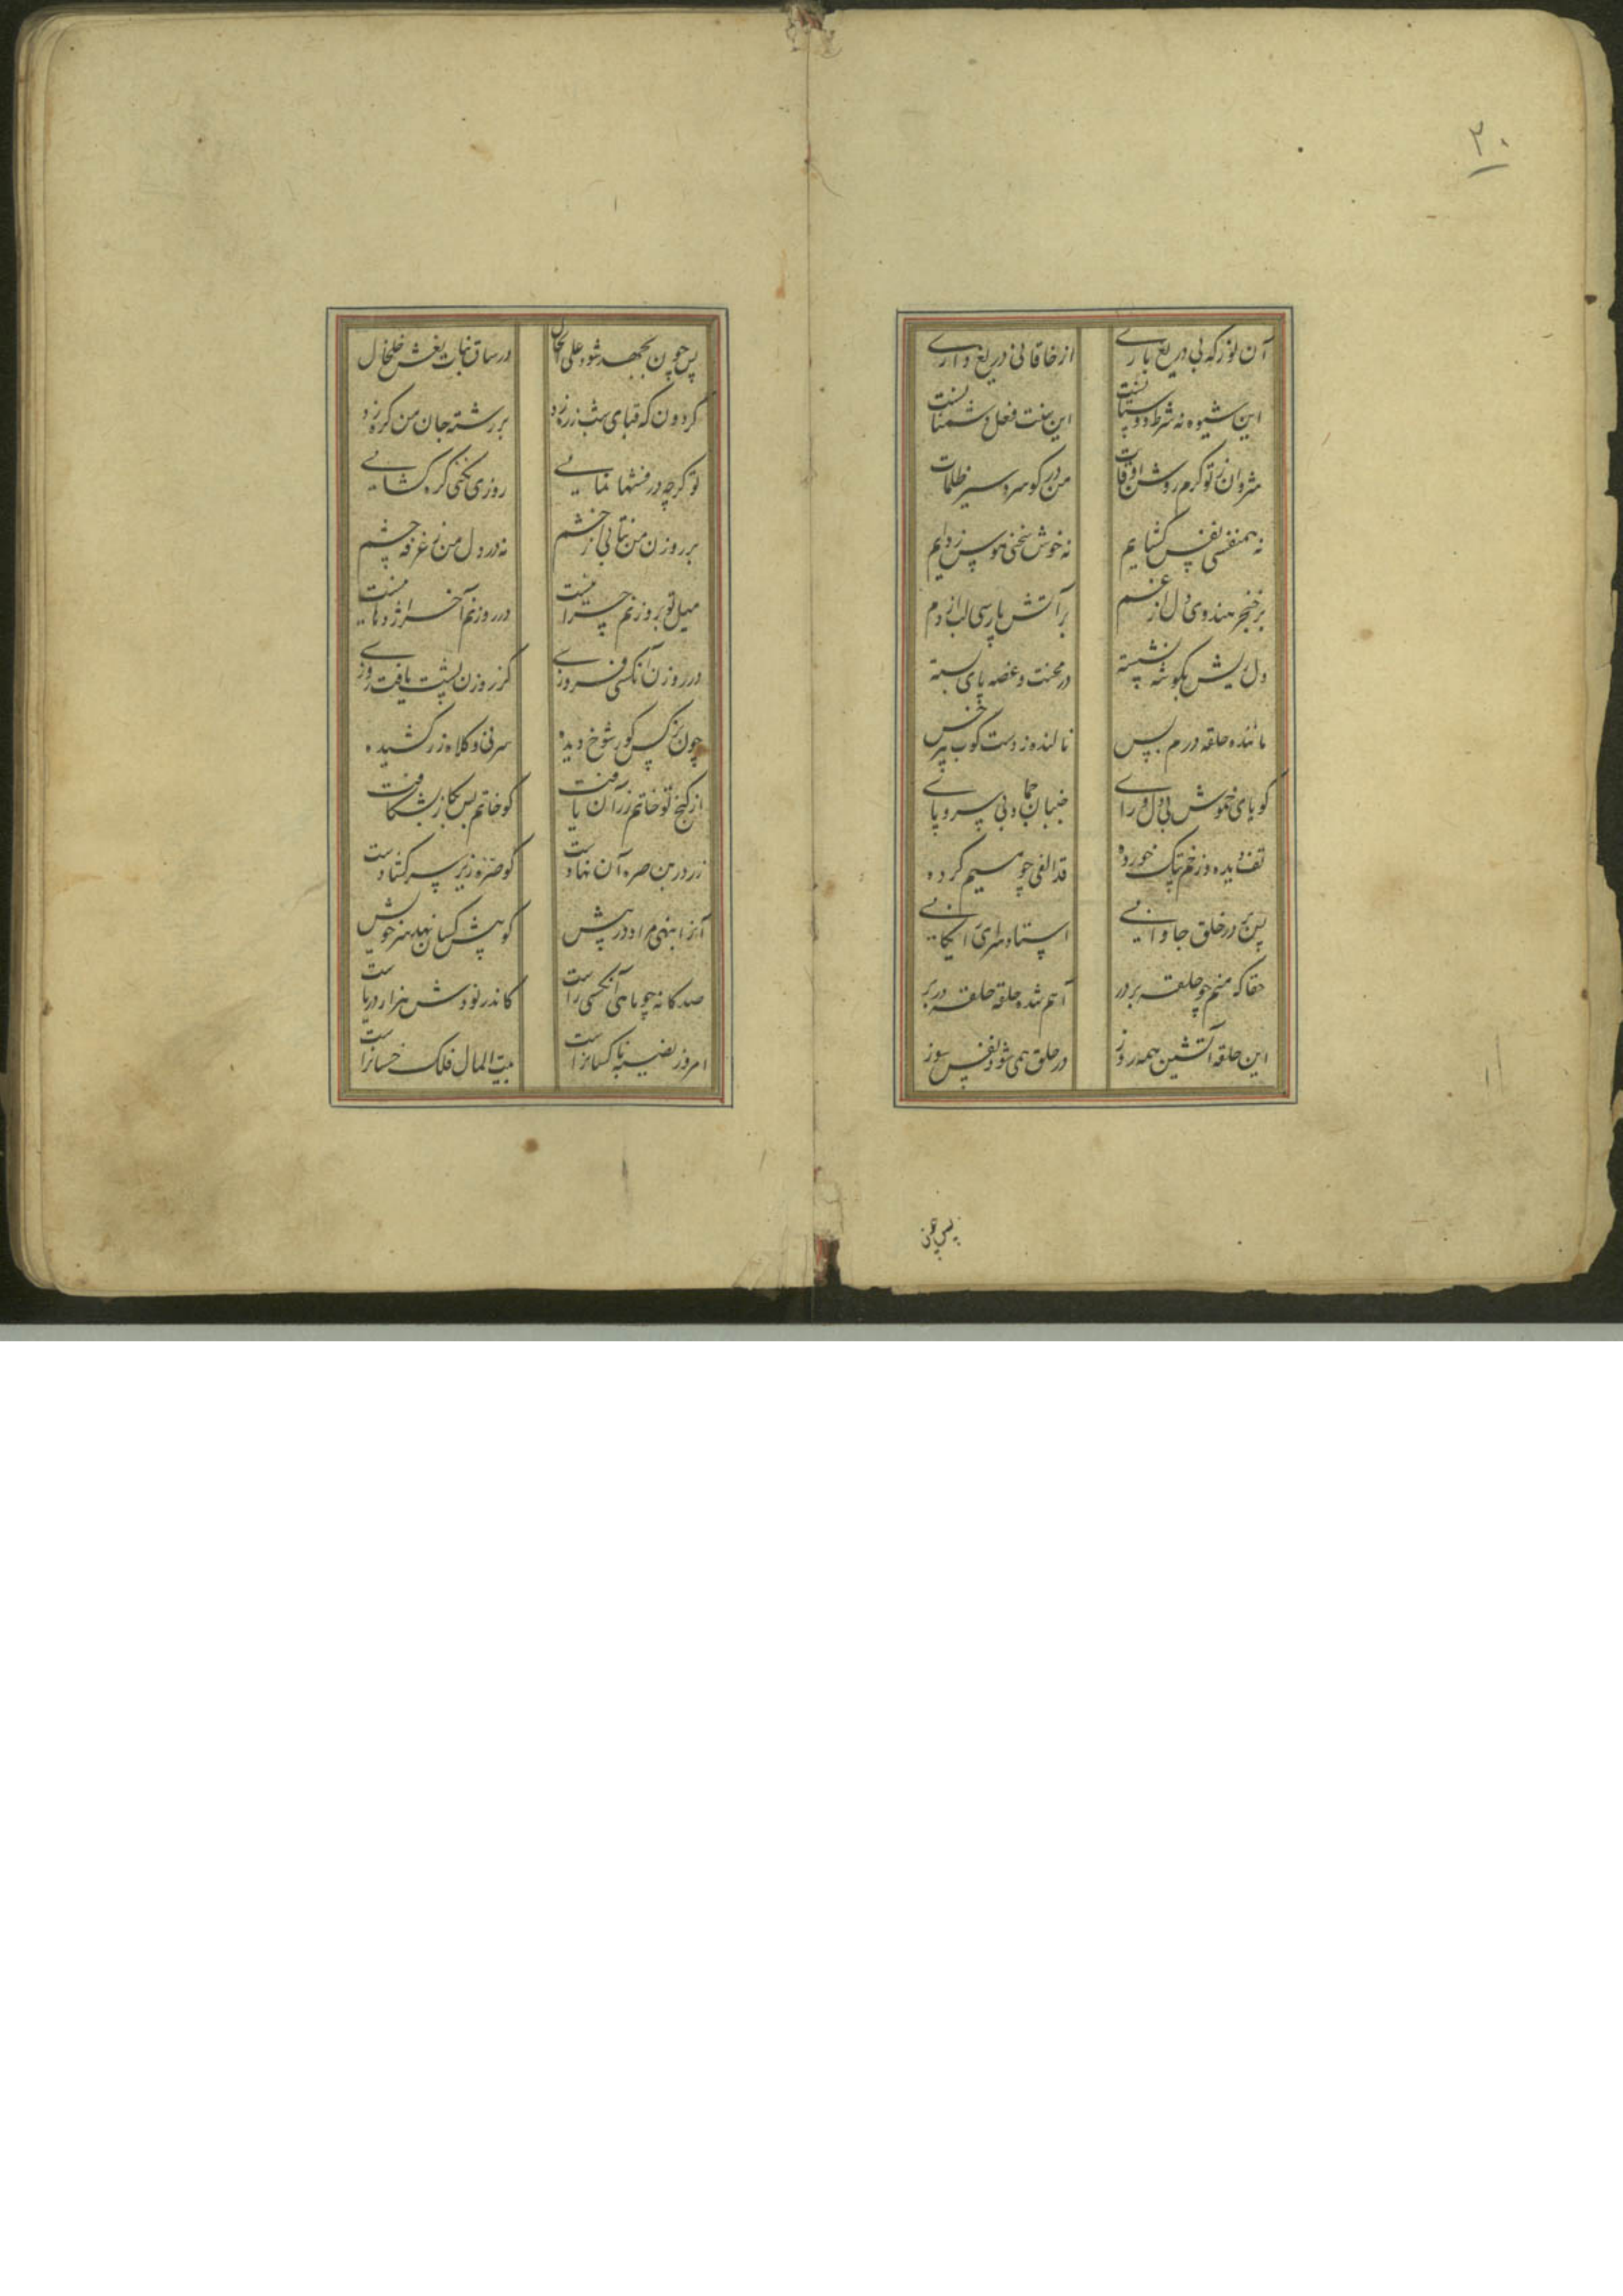 ۲۰
آن نور که بی دریغ باری از خاقانی دریغ داری
این شیوه نه شرط دوستانست این سنت فعل دشمنانست
شروان ز تو گرم روشن اوقات من در کو سردسیر ظلمات
نه همنفسی نفس گشایم نه خوش سخنی هوس زدایم
بر خنجر هندوی دل از غم بر آتش پارسی لب از دم
دل ریش بگوشه نشسته در محنت و غصه پای بسته
ماننده حلقه درم پس نالنده ز دست کوب هر خس
گویای خموش بی دل و رای جنبان جماد و بی سر و پای
تف دیده و زخم پتک خورده قد الفی چو میم کرده
پس بر در خلق جاودانی استاده سرای
حقا که منم چو حلقه بر در آهم شده حلقه حلقه در بر
این حلقه آتشین همه روز در حلق همی شود نفس سوز
پس چون
پس چون بجهد شود علی الحال در ساق نبات نعش خلخال
گردون که قبای شب زره زد بر رشته جان من گره زد
تو گرچه درفشها نمایی روزی نکنی گره گشایی
بر روزن من نتابی از خشم نه در دل من ز غرفه چشم
میل تو بروزنم چرا نیست در روزنم آخر اژدها نیست
در روزن آنکسی فروزی کز روزن پشت یافت روزی
چون نرگس کور شوخ دیده سر نی و کلاه زر کشیده
از گنج تو خاتم زر آن یافت کو خاتم بس بگاز بشکافت
زر در بن صره آن نهادست کو صره زیر سر گشادست
آنرا بنهی مراد در پیش کو پیش کسان نهد سر خویش
صدگانه چو ماهی آنکسی راست کاندر نودش هزار دریاست
امروز نصیبه ناکسانراست بیت المال فلک خسانراست